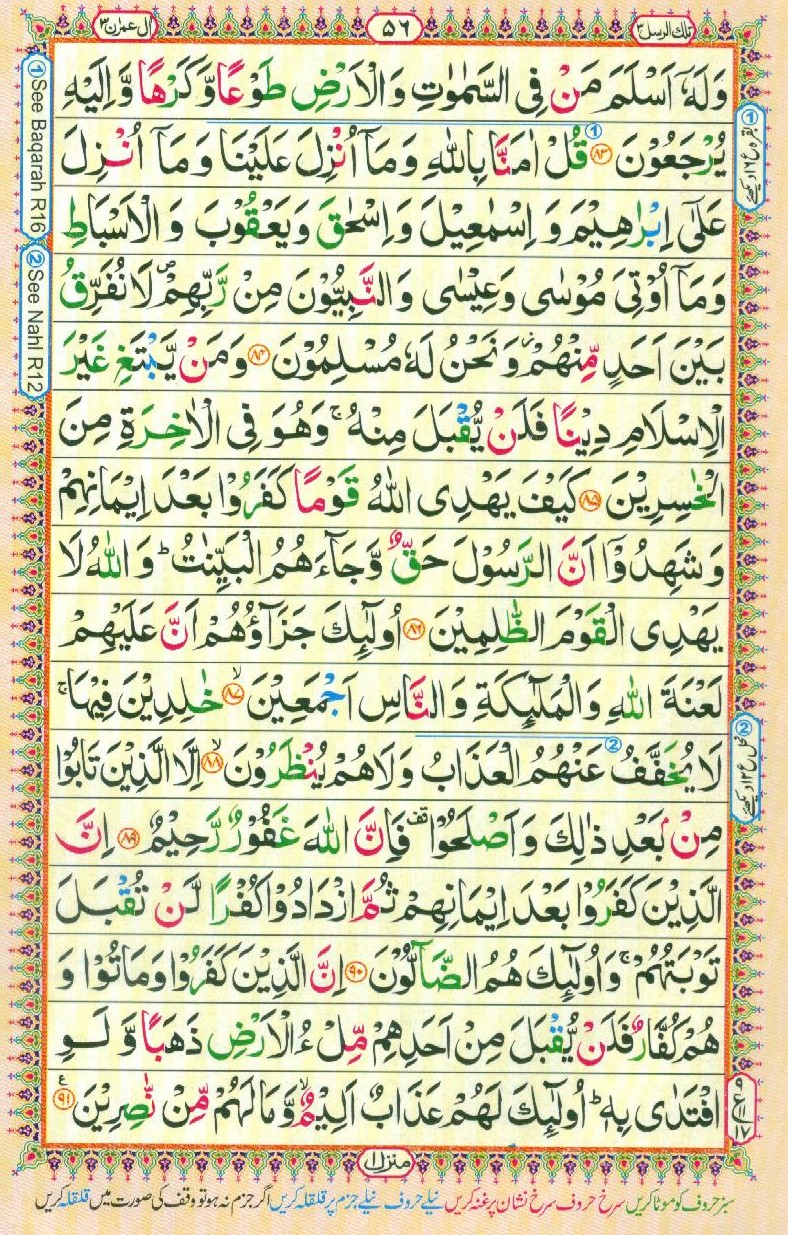 تلك الرسل ٣
٥٦
اٰل عمرٰن ٣
وَلَهٗۤ اَسْلَمَ مَنْ فِی السَّمٰوٰتِ وَالْاَرْضِ طَوْعًا وَّكَرْهًا وَّاِلَیْهِ
یُرْجَعُوْنَ ﴿٨٣﴾ قُلْ اٰمَنَّا بِاللّٰهِ وَمَاۤ اُنْزِلَ عَلَیْنَا وَمَاۤ اُنْزِلَ
عَلٰۤی اِبْرٰهِیْمَ وَ اِسْمٰعِیْلَ وَاِسْحٰقَ وَیَعْقُوْبَ وَ الْاَسْبَاطِ
وَمَاۤ اُوْتِیَ مُوْسٰی وَعِیْسٰی وَالنَّبِیُّوْنَ مِنْ رَّبِّهِمْ ۪ لَا نُفَرِّقُ
بَیْنَ اَحَدٍ مِّنْهُمْ ؗ وَنَحْنُ لَهٗ مُسْلِمُوْنَ ﴿٨٤﴾ وَمَنْ یَّبْتَغِ غَیْرَ
الْاِسْلَامِ دِیْنًا فَلَنْ یُّقْبَلَ مِنْهُ ۚ وَهُوَ فِی الْاٰخِرَةِ مِنَ
الْخٰسِرِیْنَ ﴿٨٥﴾ كَیْفَ یَهْدِی اللّٰهُ قَوْمًا كَفَرُوْا بَعْدَ اِیْمَانِهِمْ
وَ شَهِدُوْۤا اَنَّ الرَّسُوْلَ حَقٌّ وَّجَآءَهُمُ الْبَیِّنٰتُ ؕ وَ اللّٰهُ لَا
یَهْدِی الْقَوْمَ الظّٰلِمِیْنَ ﴿٨٦﴾ اُولٰٓئِكَ جَزَآؤُهُمْ اَنَّ عَلَیْهِمْ
لَعْنَةَ اللّٰهِ وَالْمَلٰٓئِكَةِ وَ النَّاسِ اَجْمَعِیْنَ ۙ﴿٨٧﴾ خٰلِدِیْنَ فِیْهَا ۚ
لَا یُخَفَّفُ عَنْهُمُ الْعَذَابُ وَلَا هُمْ یُنْظَرُوْنَ ۙ﴿٨٨﴾ اِلَّا الَّذِیْنَ تَابُوْا
مِنْۢ بَعْدِ ذٰلِكَ وَ اَصْلَحُوْا ۫ فَاِنَّ اللّٰهَ غَفُوْرٌ رَّحِیْمٌ ﴿٨٩﴾ اِنَّ
الَّذِیْنَ كَفَرُوْا بَعْدَ اِیْمَانِهِمْ ثُمَّ ازْدَادُوْا كُفْرًا لَّنْ تُقْبَلَ
تَوْبَتُهُمْ ۚ وَ اُولٰٓئِكَ هُمُ الضَّآلُّوْنَ ﴿٩٠﴾ اِنَّ الَّذِیْنَ كَفَرُوْا وَمَاتُوْا وَ
هُمْ كُفَّارٌ فَلَنْ یُّقْبَلَ مِنْ اَحَدِهِمْ مِّلْءُ الْاَرْضِ ذَهَبًا وَّ لَوِ
افْتَدٰی بِهٖ ؕ اُولٰٓئِكَ لَهُمْ عَذَابٌ اَلِیْمٌ ۙ وَّمَا لَهُمْ مِّنْ نّٰصِرِیْنَ ﴿٩١﴾
① See Baqarah R16
② See Nahl R12
① بقره ع ١٦ دیکھئے
② نحل ع ١٢ دیکھئے
٩
ع ١١
١٧
منزل ١
سبز حروف کو موٹا کریں سرخ حروف سرخ نشان پر غنہ کریں نیلے حروف نیلے جزم پر قلقلہ کریں اگر جزم نہ ہو تو وقف کی صورت میں قلقلہ کریں